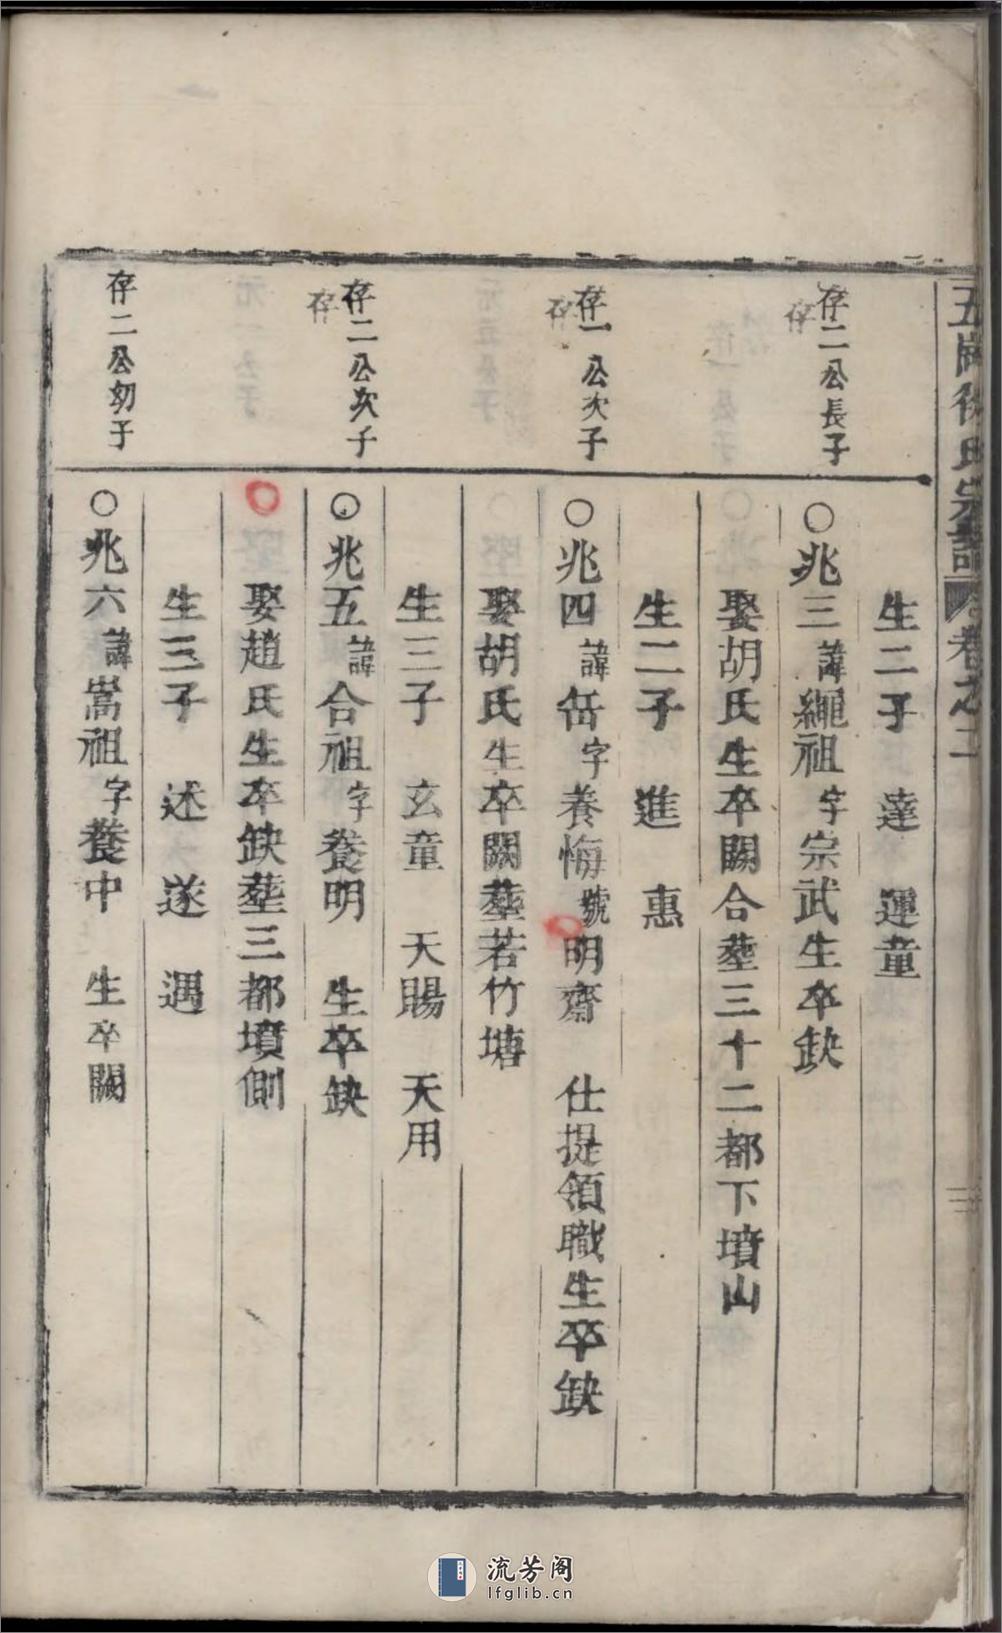 生二子 達 運童
存二公長子
存
○兆三諱繩祖字宗武生卒缺
娶胡氏生卒闕合塟三十二都下墳山
生二子 進 惠
存一公次子
存
○兆四諱岳字養悔號明齋 仕提領職生卒缺
娶胡氏生卒闕塟若竹塘
生三子 玄童 天賜 天用
存二公次子
存
○兆五諱合祖字養明 生卒缺
娶趙氏生卒缺塟三都墳側
生三子 述 遂 遇
存二公幼子
○兆六諱嵩祖字養中 生卒闕
氏宗譜 卷之二
流芳阁
lfglib.cn